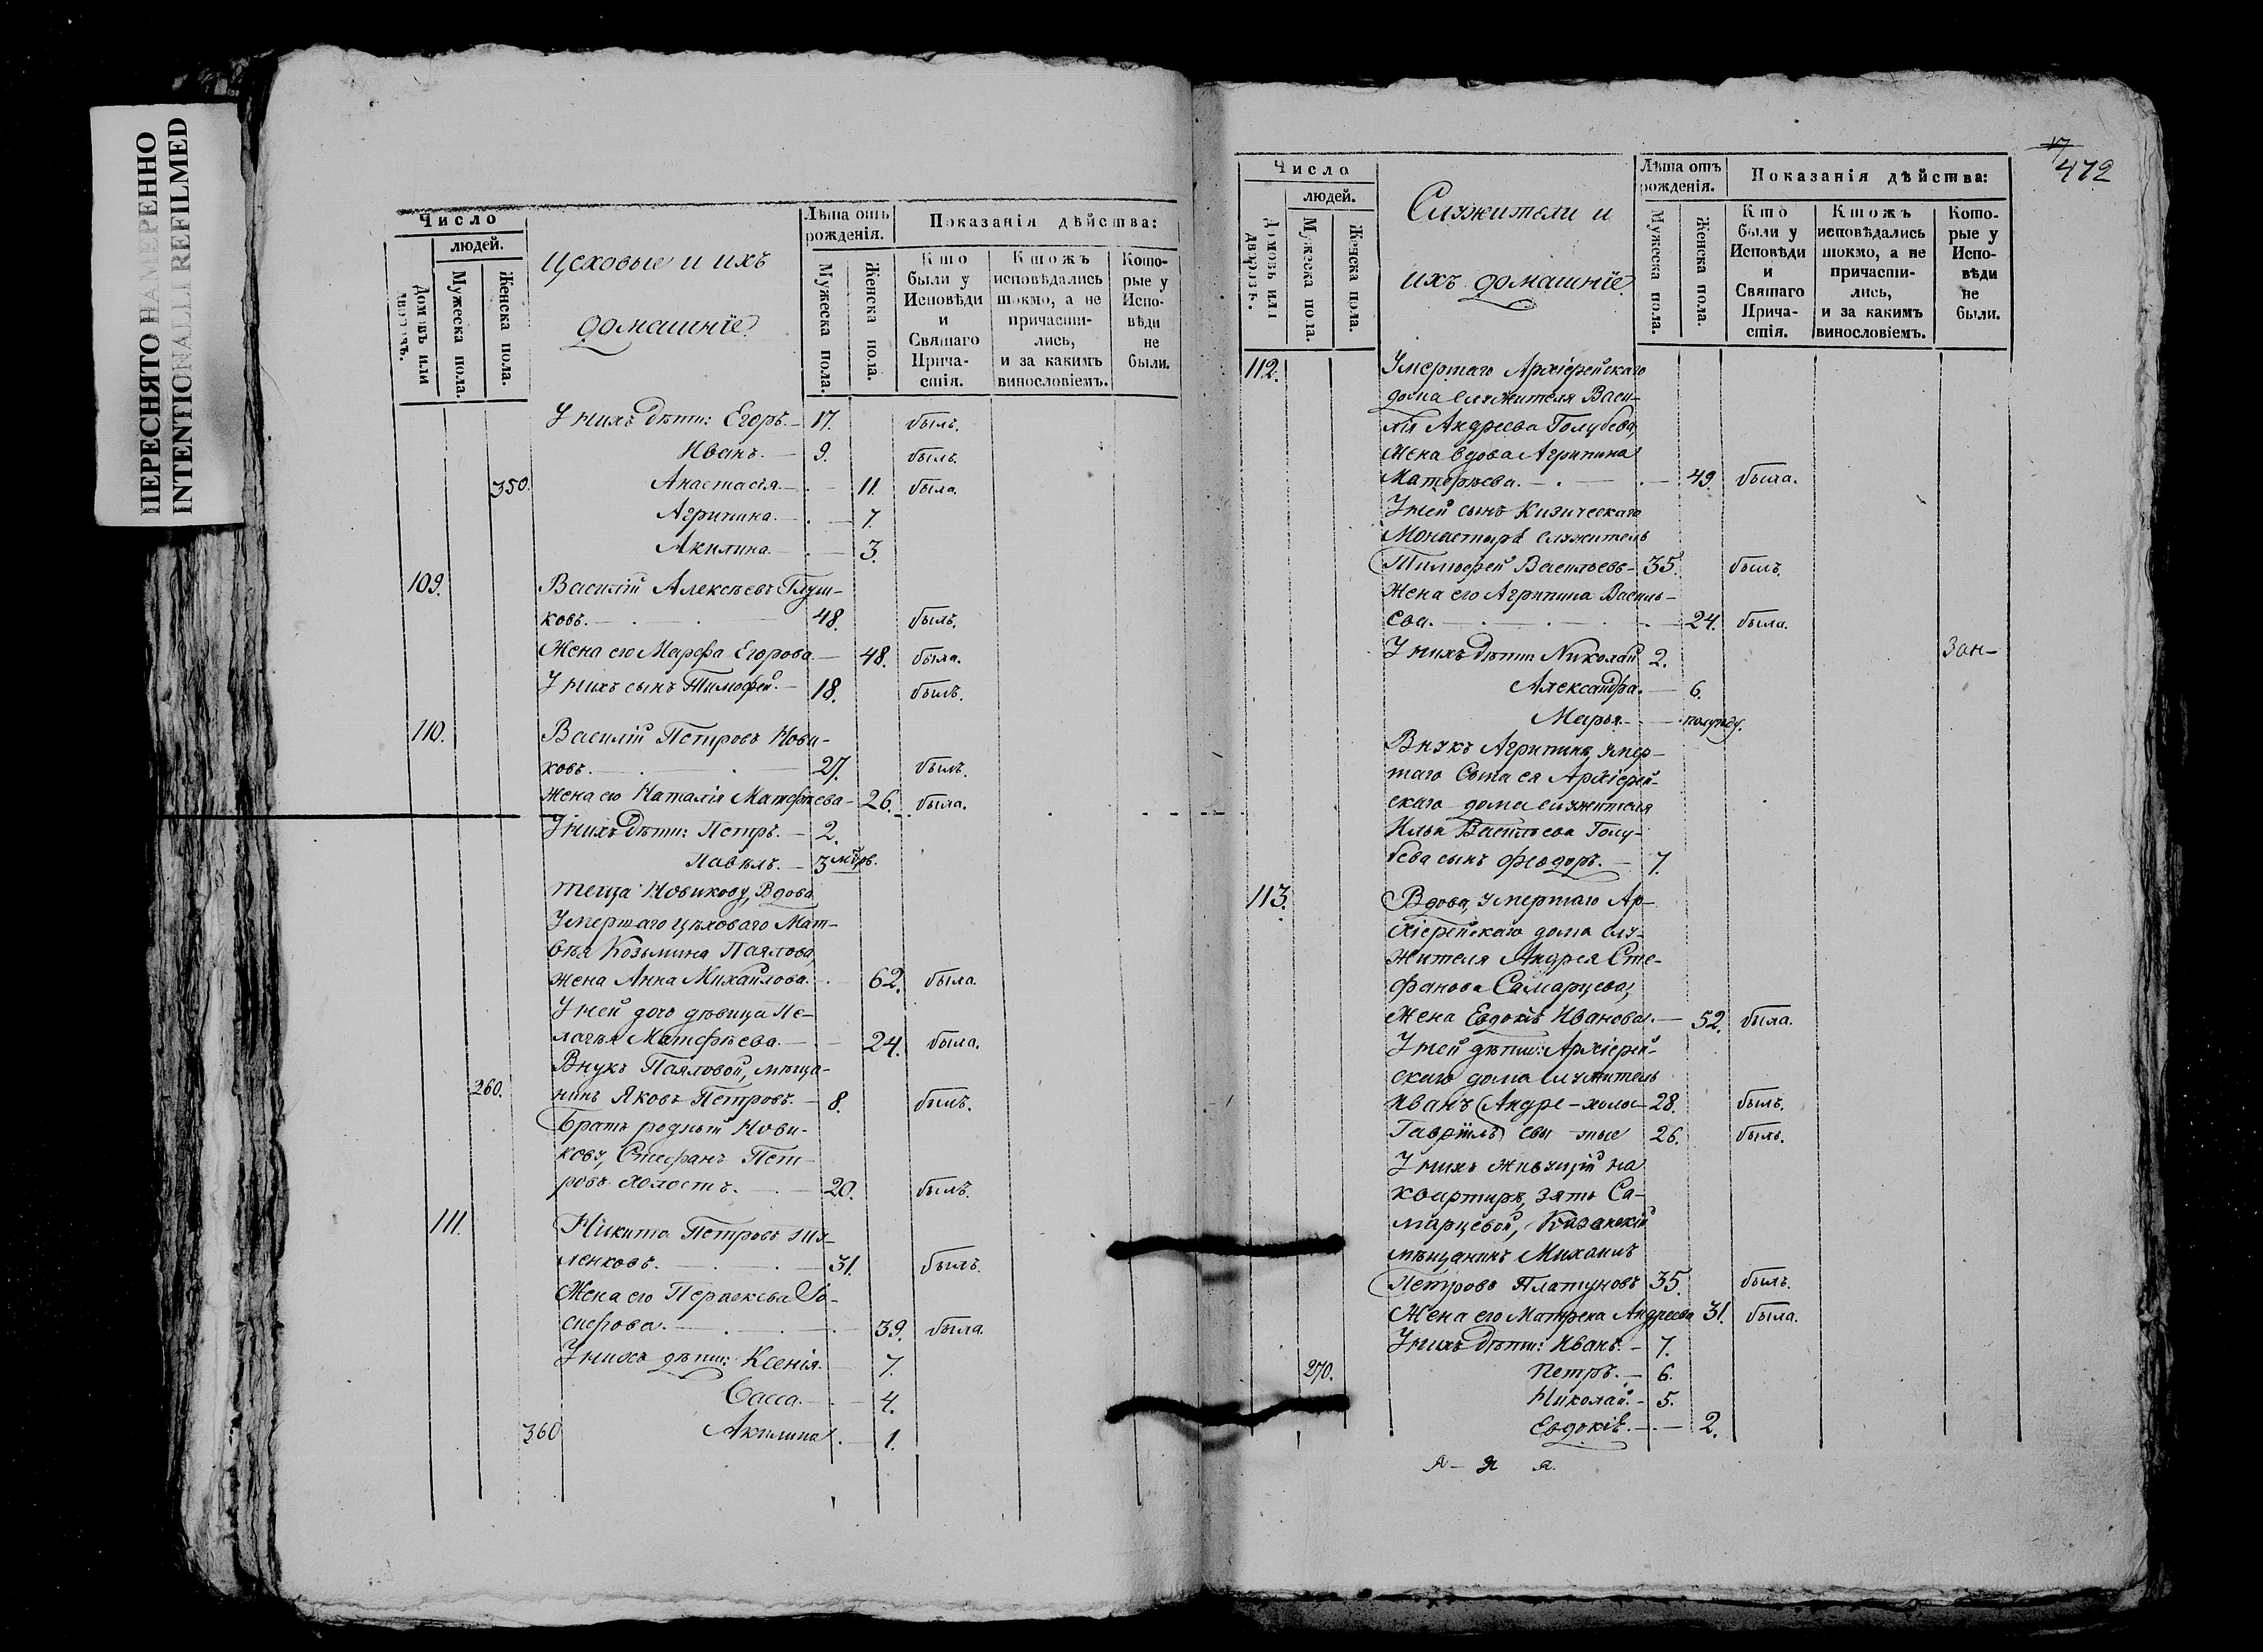 ПЕРЕСНЯТО НАМЕРЕННО
INTENTIONALLI REFILMED
Число
людей.
Домовъ или дворовъ.
Мужеска пола.
Женска пола.
Цеховые и ихъ
домашніе
Лѣта отъ рожденія.
Мужеска пола.
Женска пола.
Показанія дѣйства:
Кто были у Исповѣди и Святаго Прича-стія.
Ктожъ исповѣдались токмо, а не причасти-лись, и за какимъ винословіемъ.
Кото-рые у Испо-вѣди не были.
У нихъ дѣти: Егоръ. 17. былъ.
Иванъ. 9. былъ.
350. Анастасія. 11. была.
Агрипина. 7.
Акилина. 3.
109. Василій Алексѣевъ Глуш-
ковъ. 48. былъ.
Жена его Марфа Егорова 48. была.
У нихъ сынъ Тимофей. 18. былъ.
110. Василій Петровъ Нови-
ковъ. 27. былъ.
Жена его Наталія Матфѣева 26. была.
У нихъ дѣти: Петръ. 2.
Павелъ. 3 мѣсяц.
Теща Новикову, Вдова
Умершаго цѣховаго Мат-
вѣя Козьмина Паялова,
жена Анна Михайлова. 62. была.
У ней дочь дѣвица Пе-
лагѣя Матфѣева. 24. была.
Внукъ Паяловой, мѣща-
260. нинъ Яковъ Петровъ. 8. былъ.
Братъ родный Нови-
кову, Стефанъ Пет-
ровъ холостъ. 20. былъ.
111. Никита Петровъ
ленковъ. 31. былъ.
Жена его
сифова. 39. была.
У нихъ дѣти: Ксенія. 7.
Васса. 4.
360 Акилина. 1.
472
Число
людей.
Домовъ или дворовъ.
Мужеска пола.
Женска пола.
Служители и
ихъ домашніе
Лѣта отъ рожденія.
Мужеска пола.
Женска пола.
Показанія дѣйства:
Кто были у Исповѣди и Святаго Прича-стія.
Ктожъ исповѣдались токмо, а не причасти-лись, и за какимъ винословіемъ.
Кото-рые у Испо-вѣди не были.
112. Умершаго Архіерейскаго
дома служителя Васи-
лія Андреева Голубева,
Жена вдова Агрипина
Матфѣева. 49. была.
У ней сынъ Кизическаго
Монастыря служитель
Тимофей Васильевъ 35. былъ.
Жена его Агрипина Василь-
ева. 24. была.
У нихъ дѣти: Николай 2.
Александра. 6.
Марья. полугоду.
Внукъ Агрипинѣ, умер-
шаго сына ея Архіерей-
скаго дома служителя
Ильи Васильева Голу-
бева сынъ Феодоръ. 7.
113. Вдова, умершаго Ар-
хіерейскаго дома слу-
жителя Андрея Сте-
фанова Самарцева,
Жена Евдокія Иванова. 52. была.
У ней дѣти: Архіерей-
скаго дома служитель
Иванъ Андре- холос- 28. былъ.
Гавріилъ евы тые 26. былъ.
У нихъ живущій на
квартирѣ, зять Са-
марцевой, Казанскій
мѣщанинъ Михаилъ
Петровъ Платуновъ 35. былъ.
Жена его Матрена Андреева 31. была.
У нихъ дѣти: Иванъ. 7.
270. Петръ. 6.
Николай. 5.
Евдокія. 2.